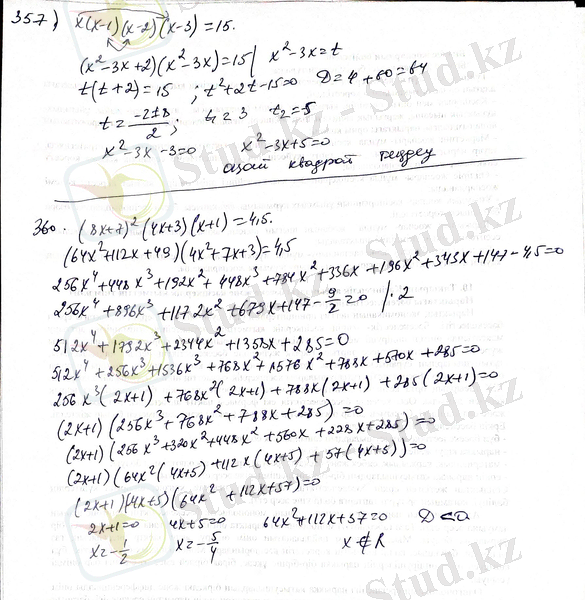 357) x(x-1)(x-2)(x-3)=15.
(x²-3x+2)(x²-3x)=15 | x²-3x=t
t(t+2)=15 ; t²+2t-15=0 D=4+60=64
t=(-2±8)/2; t₁=3 t₂=-5
x²-3x-3=0 x²-3x+5=0
квадрат теңдеу
360. (8x+7)²(4x+3)(x+1)=4,5.
(64x²+112x+49)(4x²+7x+3)=4,5
256x⁴+448x³+192x²+448x³+784x²+336x+196x²+343x+147-4,5=0
256x⁴+896x³+1172x²+679x+147-9/2=0 /·2
512x⁴+1792x³+2344x²+1358x+285=0
512x⁴+256x³+1536x³+768x²+1576x²+788x+570x+285=0
256x³(2x+1)+768x²(2x+1)+788x(2x+1)+285(2x+1)=0
(2x+1)(256x³+768x²+788x+285)=0
(2x+1)(256x³+320x²+448x²+560x+228x+285)=0
(2x+1)(64x²(4x+5)+112x(4x+5)+57(4x+5))=0
(2x+1)(4x+5)(64x²+112x+57)=0
2x+1=0 4x+5=0 64x²+112x+57=0 D<0
x=-1/2 x=-5/4 x∉R
Stud.kz - Stud.kz